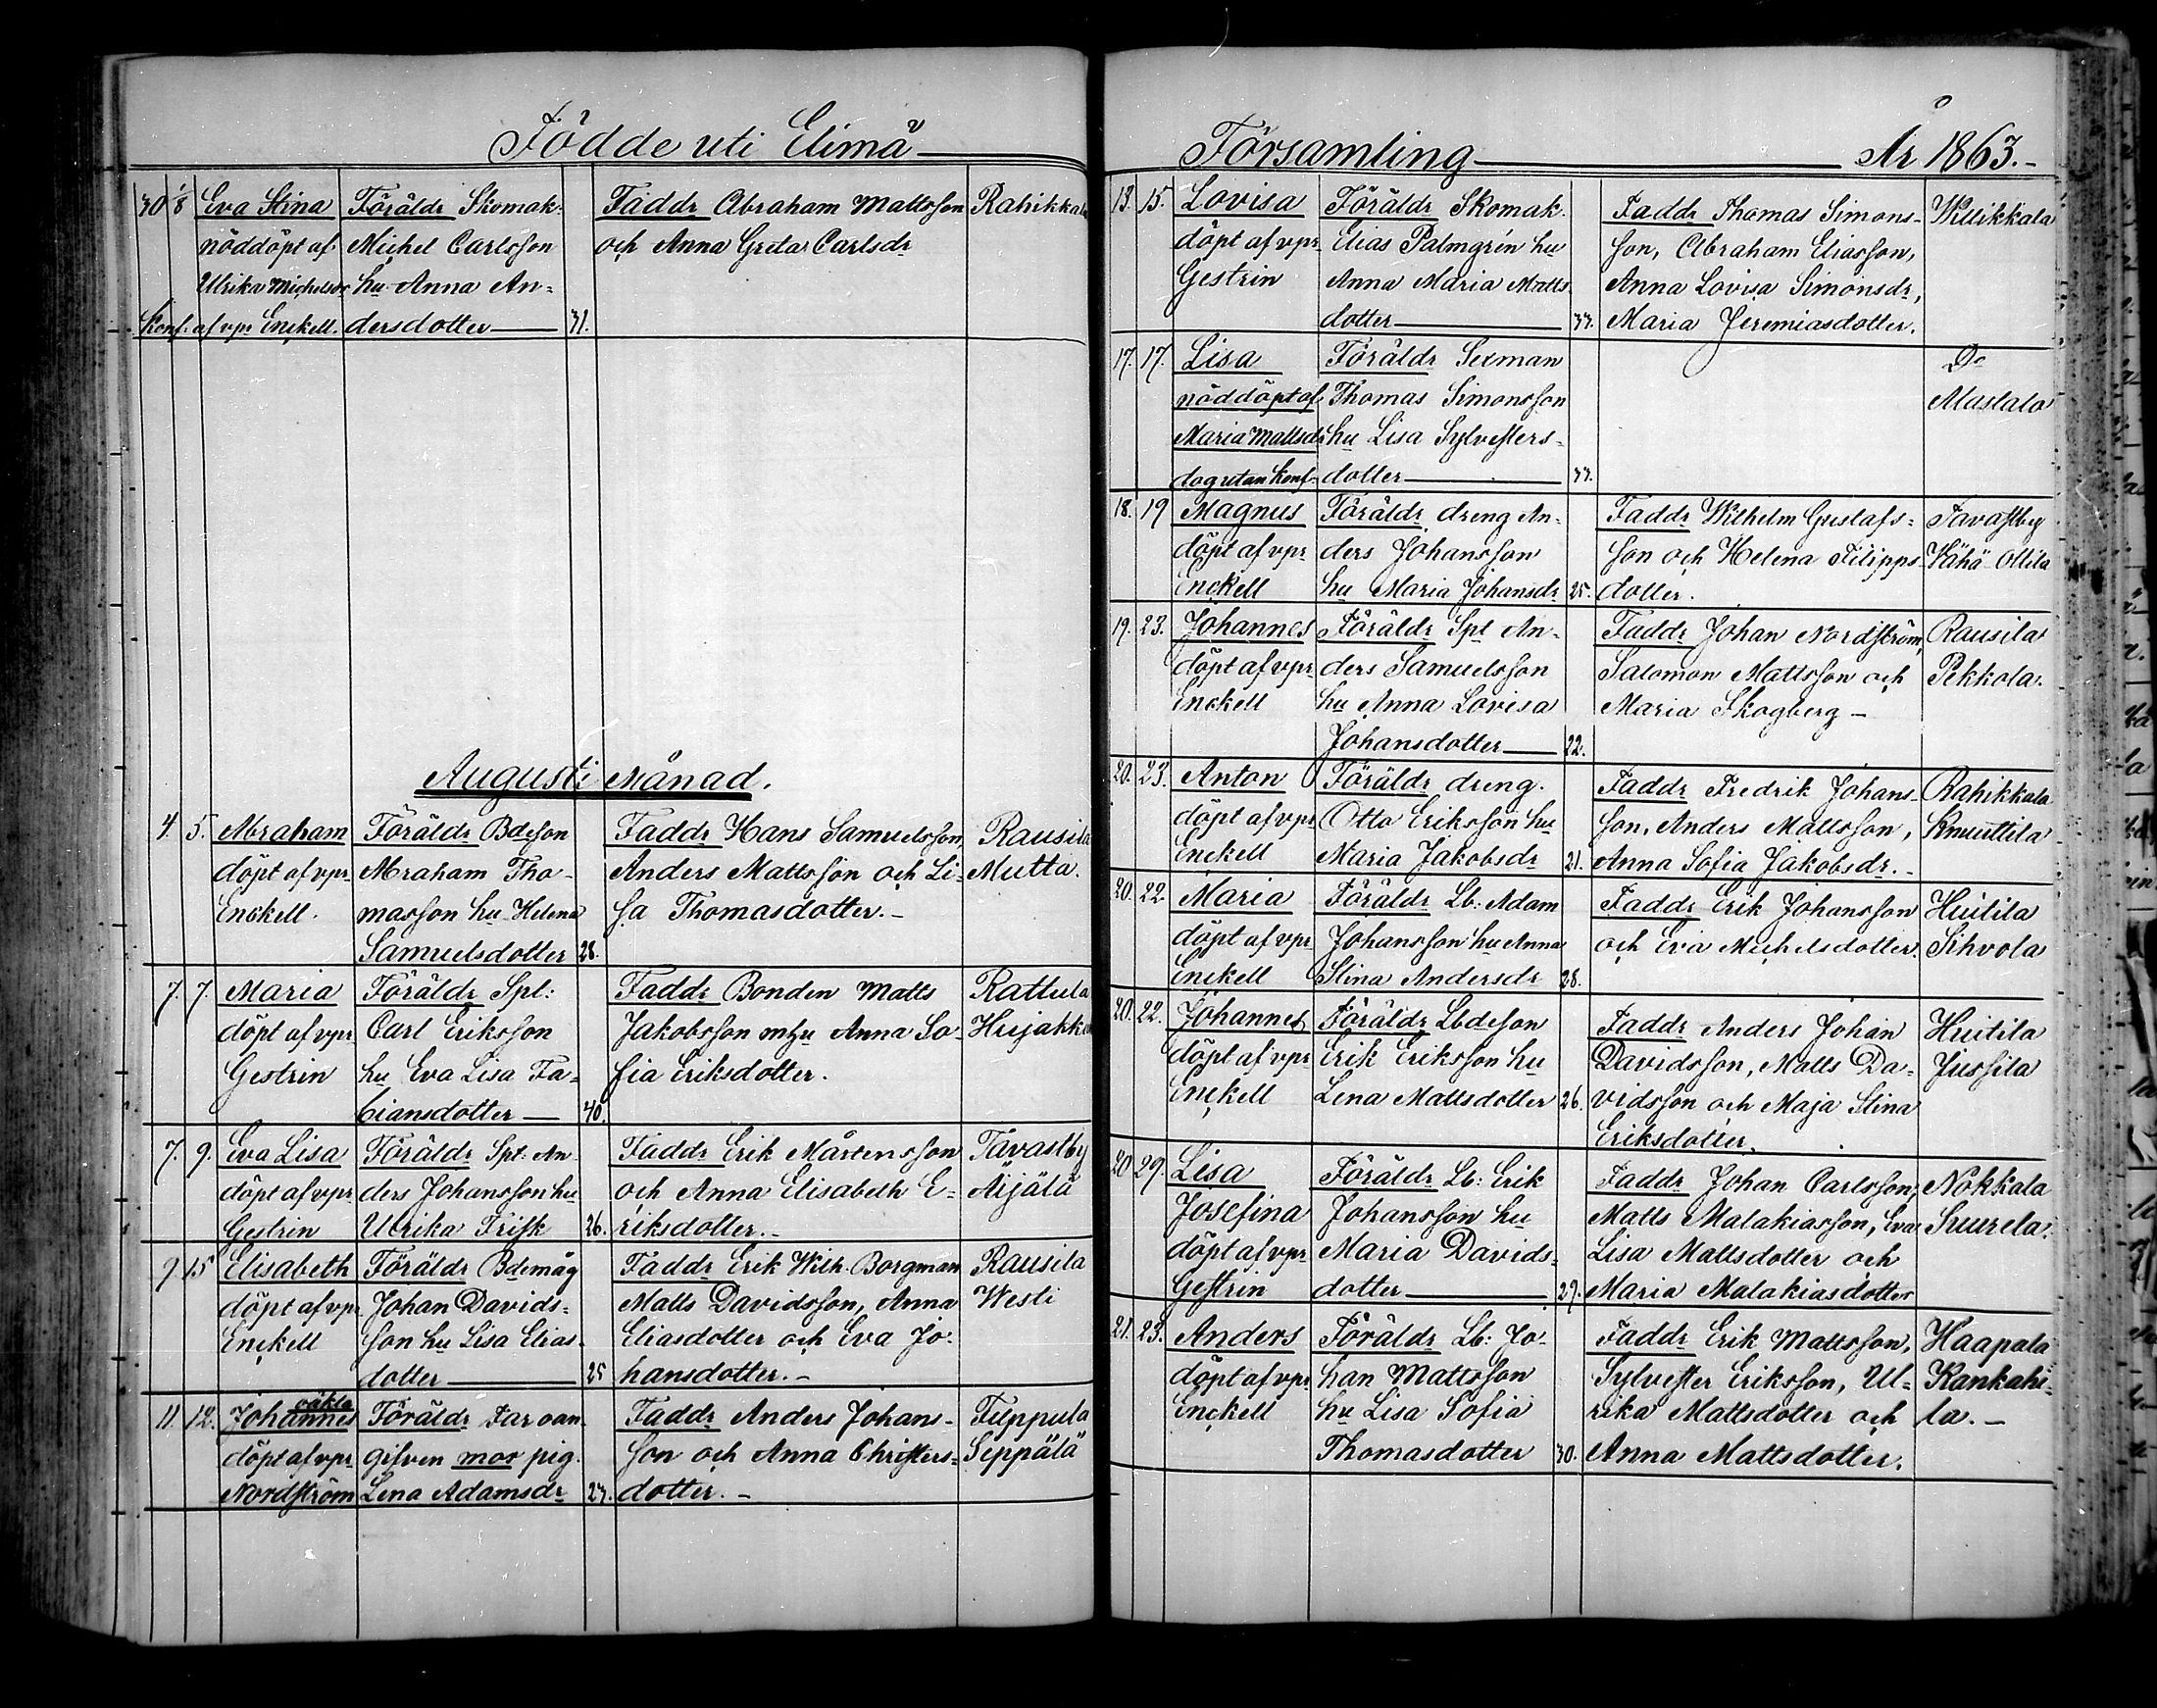 Födde uti Elimä
30 1/8 Eva Stina Föräldr Skomak: Faddr Abraham Mattsson Rahikkala
nöddöpt af Michel Carlsson och Anna Greta Carlsdr
Ulrika Michelsdr hu Anna An-
Konf. af vpr Enckell. dersdotter 31.
Augusti Månad.
4. 5. Abraham Föräldr Bdeson Faddr Hans Samuelsson, Rausila
döpt af vpr Abraham Tho- Anders Mattsson och Li- Mutta.
Enckell. masson hu Helena sa Thomasdotter.-
Samuelsdotter 28.
7. 7. Maria Föräldr Spl: Faddr Bonden Matts Rattula
döpt af vpr Carl Eriksson Jakobsson m hu Anna So- Hujakk
Gestrin hu Eva Lisa Fa- fia Eriksdotter.
biansdotter 40.
7. 9. Eva Lisa Föräldr Spt: An- Faddr Erik Mårtensson Tavastby
döpt af vpr ders Johansson hu och Anna Elisabeth E- Äijälä
Gestrin Ulrika Frisk 26. riksdotter.-
9 15 Elisabeth Föräldr Bdemåg Faddr Erik Wilh. Borgman Rausila
döpt af vpr Johan Davids- Matts Davidsson, Anna Westi
Enckell son hu Lisa Elias- Eliasdotter och Eva Jo-
dotter 25 hansdotter.-
oäkta
11. 12. Johannes Föräldr Far oan- Faddr Anders Johans- Tilppula
döpt af vpr gifven mor pig. son och Anna Christers- Seppälä
Nordström Lena Adamsdr 23. dotter.-
Församling År 1863.-
13. 15. Lovisa Föräldr Skomak. Faddr Thomas Simons- Willikkala
döpt af vpr Elias Palmgrén hu son, Abraham Eliasson,
Gestrin Anna Maria Matts Anna Lovisa Simonsdr,
dotter 33. Maria Jeremiasdotter.
17. 17. Lisa Föräldr Sexman Do
nöddöpt af Thomas Simonsson Mastala
Maria Mattsdr hu Lisa Sylvesters-
dog utan konf. dotter 33.
18. 19 Magnus Föräldr dreng An- Faddr Wilhelm Gustafs- Tavastby
döpt af vpr ders Johansson son och Helena Filipps- Vähä-Ollila
Enckell hu Maria Johansdr 25. dotter.
19. 23. Johannes Föräldr Spt An- Faddr Johan Nordström, Rausila
döpt af vpr ders Samuelsson Salomon Mattsson och Pekkola.
Enckell hu Anna Lovisa Maria Skogberg -
Johansdotter 22.
20. 23. Anton Föräldr dreng. Faddr Fredrik Johans- Rahikkala
döpt af vpr Otto Eriksson hu son, Anders Mattsson, Knuuttila
Enckell Maria Jakobsdr 21. Anna Sofia Jakobsdr.-
20. 22. Maria Föräldr Lb: Adam Faddr Erik Johansson Huitila
döpt af vpr Johansson hu Anna och Eva Michelsdotter. Sihvola
Enckell Stina Andersdr 28.
20. 22. Johannes Föräldr Lbdeson Faddr Anders Johan Huitila
döpt af vpr Erik Eriksson hu Davidsson, Matts Da- Jussila
Enckell Lena Mattsdotter 26. vidsson och Maja Stina
Eriksdotter.
20 29. Lisa Föräldr Lb: Erik Faddr Johan Carlsson, Nokkala
Josefina Johansson hu Matts Malakiasson, Eva Suurela.
döpt af vpr Maria Davids- Lisa Mattsdotter och
Gestrin dotter 29. Maria Malakiasdotter
21. 23. Anders Föräldr Lb: Jo- Faddr Erik Mattsson, Haapala
döpt af vpr han Mattsson Sylvester Eriksson, Ul- Kankahi-
Enckell hu Lisa Sofia rika Mattsdotter och la.-
Thomasdotter 30. Anna Mattsdotter.